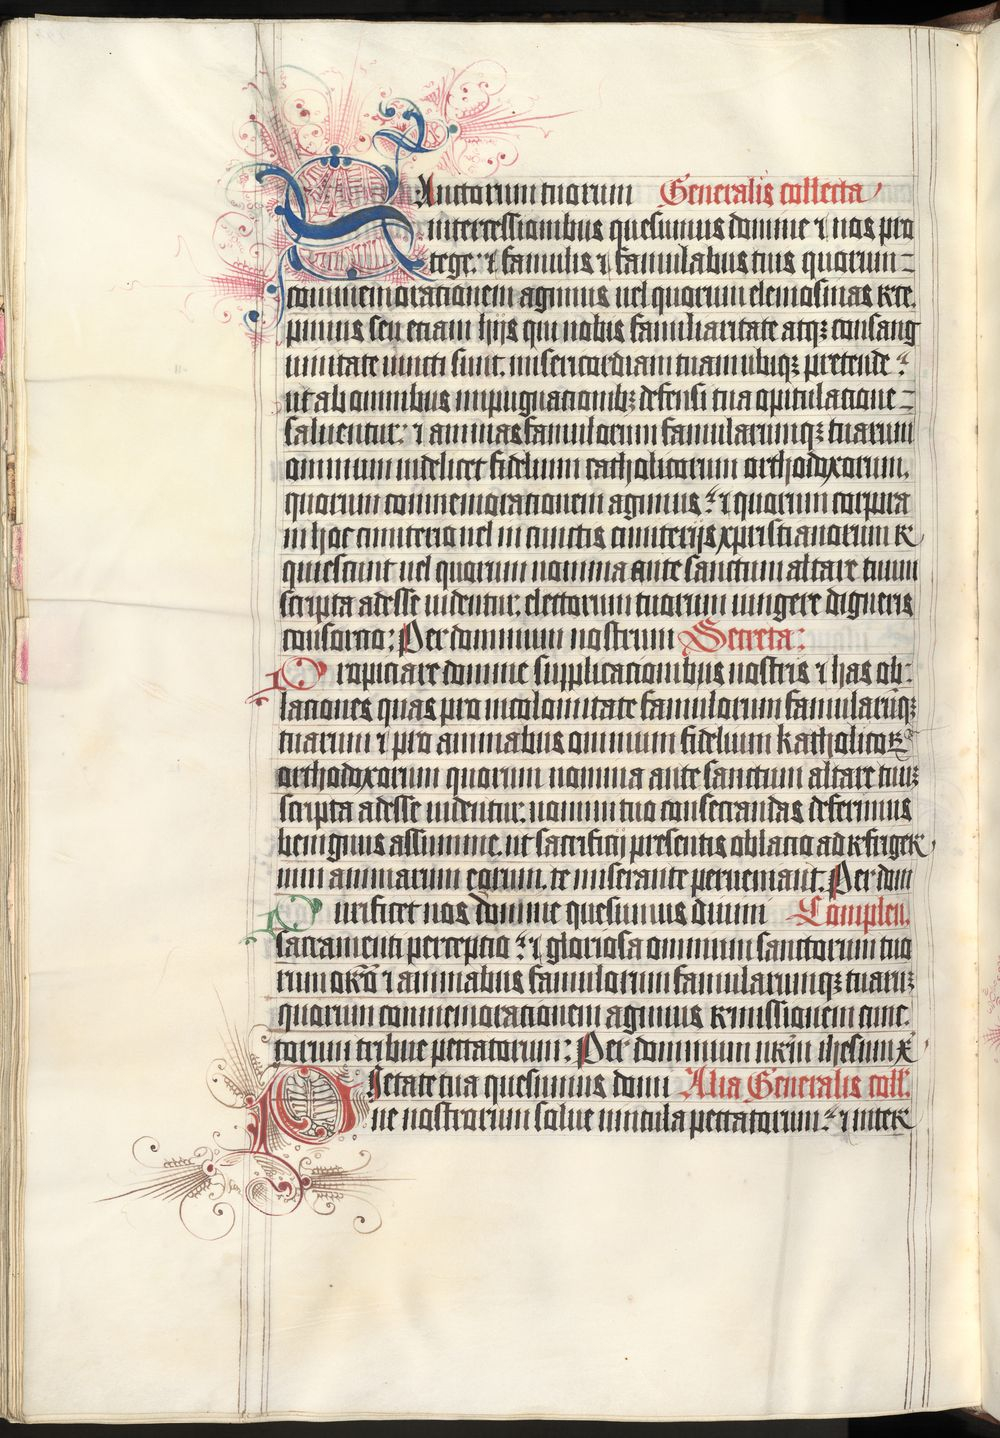 SAnctorum tuorum Generalis collecta
intercessionibus quesumus domine ⁊ nos pro
tege: ⁊ famulis ⁊ famulabus tuis quorum
commemorationem agimus uel quorum elemosinas rece,
pimus seu etiam hijs qui nobis familiaritate atqꝫ consang
uinitate iuncti sunt. misericordiam tuam ubiqꝫ pretende
ut ab omnibus impugnationibꝫ defensi tua opitulatione
saluentur: ⁊ animas famulorum famularumqꝫ tuarum
omnium uidelicet fidelium catholicorum orthodoxorum.
quorum commemorationem agimus: ⁊ quorum corpora
in hoc cimiterio uel in cunctis cimiterijs xpristianorum re
quiescunt uel quorum nomina ante sanctum altare tuum
scripta adesse uidentur. electorum tuorum iungere digneris
consortio: Per dominum nostrum Secreta:
Propiciare domine supplicacionibus nostris ⁊ has ob:
lationes quas pro incolomitate famulorum famularūqꝫ
tuarum ⁊ pro animabus omnium fidelium katholicoꝝ
orthodoxorum quorum nomina ante sanctum altare tuuꝫ
scripta adesse uidentur. nomini tuo consecrandas deferimus
benignus assumme. ut sacrificij presentis oblatio ad refriger
ium animarum eorum. te miserante perueniant. Per dom
Purificet nos domine quesumus diuini Complen.
sacramenti perceptio: ⁊ gloriosa omnium sanctorum tuo
rum orō ⁊ animabus famulorum famularumqꝫ tuaruꝫ
quorum commemorationem agimus remissionem cunc.
torum tribue peccatorum: Per dominum nrm̄ ihesum x̄
PIetate tua quesumus domi Alia Generalis coll.
ne nostrorum solue uincula peccatorum: ⁊ interce